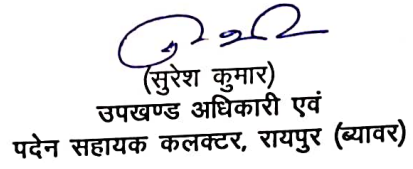 (सुरेश कुमार)
उपखण्ड अधिकारी एवं
पदेन सहायक कलक्टर, रायपुर (ब्यावर)